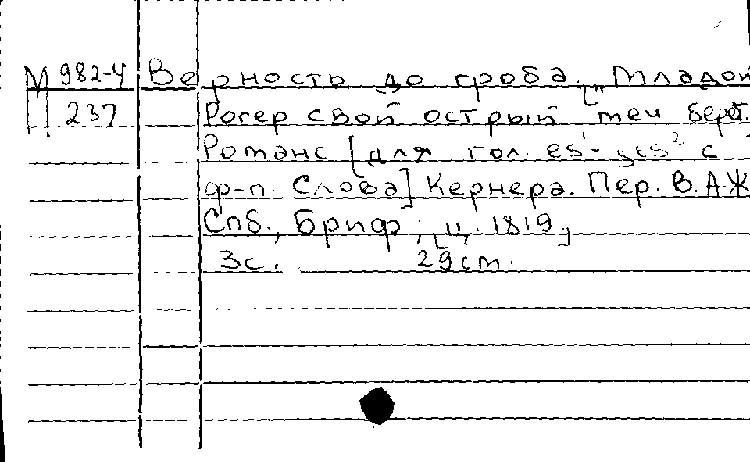 М 982-4 Верность до гроба. ["Младой
П 237 Рогер свой острый меч берёт.
Романс [для гол. es¹-ges² с
ф-п. Слова] Кернера. Пер. В.А.Ж
Спб., Бриф, [ц. 1819]
3с. 29см.